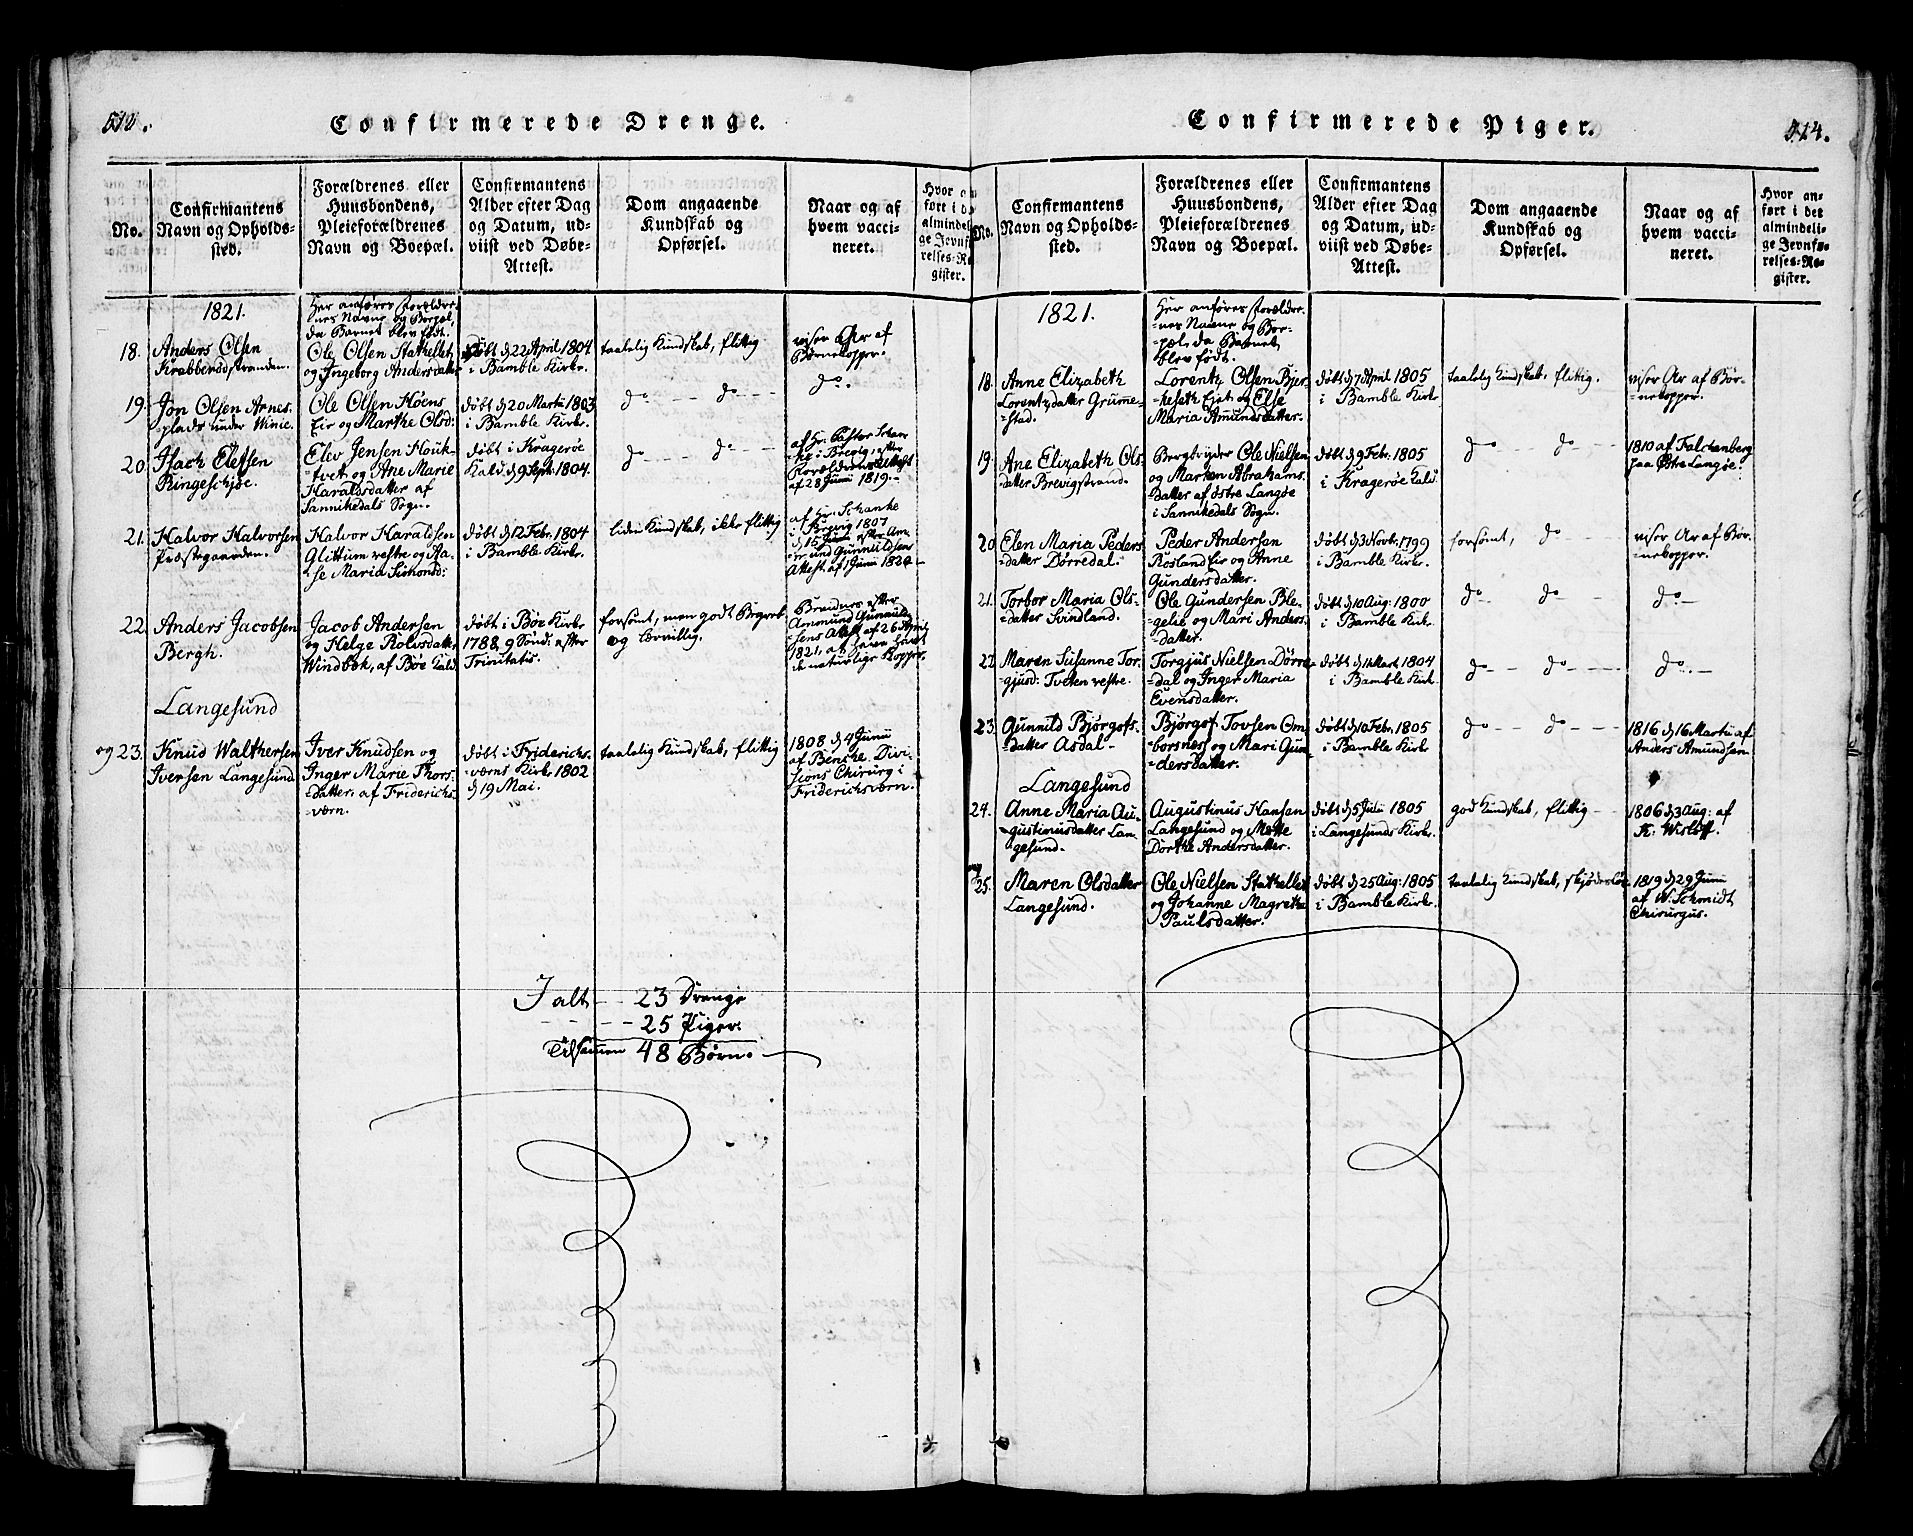 Confirmerede Drenge.
No.
Confirmantens
Navn og Opholds-
sted.
Forældrenes eller
Huusbondens,
Pleieforældrenes
Navn og Boepæl.
Confirmantens
Alder efter Dag
og Datum, ud-
viist ved Døbe-
Attest.
Dom angaaende
Kundskab og
Opførsel.
Naar og af
hvem vacci-
neret.
1821.
Her anføres Forældre-
nes Navne og Boepæl,
da Barnet blev født.
18.
Anders Olsen
Krabberødstranden.
Ole Olsen Stathellet
og Ingeborg Andersdatter
døbt d 22 April 1804
i Bamble Kirke.
taalelig Kundskab, flittig
viser Ar af
Børnekopper.
19.
Jon Olsen Arnes-
plads under Winie.
Ole Olsen Høens
Eie og Marthe Olsd:
døbt d 20 Martii 1803
i Bamble Kirke.
do - - - do - -
do.
20.
Isach Elefsen
Ringeschjøe.
Elev Jensen Houk-
tvet og Ane Marie
Haraldsdatter af
Sannikedals Sogn.
døbt i Kragerøe
Kald d 9 Sept. 1804.
do - - - do - -
af Hr. Pastor Schan-
ke i Brevig efter
Forældrenes Attest
af 28 Junii 1819.-
21.
Halvor Halvorsen
Præstegaarden.
Halvor Haraldsen
Glittum vestre og Aa-
se Maria Simonsd:
døbt d 12 Febr. 1804
i Bamble Kirke.
liden Kundskab, ikke flittig
af Hr. Schanke
i Brevig 1807
d 15 Junii efter Am-
mund Gunnuldsens
Attest af 1 Junii 1820 -
22.
Anders Jacobsen
Bergh.
Jacob Andersen
og Helge Rolvsdatter
Windbek, af Bøe Kald
døbt i Bøe Kirke
1788, 9 Sønd: efter
Trinitatis.
forsømt, men godt Begreb
og lærvillig.
Bevidnes efter
Ammund Gunnuld-
sens Attest af 26 April
1821, at have havt
de naturlige Kopper.
Langesund
og 23.
Knud Walthersen
Iversen Langesund
Iver Knudsen og
Inger Marie Thors-
datter af Friderichs-
værn.
døbt i Friderichs-
værns Kirke 1802
d 19 Mai.
taalelig Kundskab, flittig
1808 d 4 Junii
af Benske, Divi-
sions Chirurg i
Friderichsværn.
I alt - - 23 Drenge
- - - - 25 Piger.
Tilsammen 48 Børn.
Confirmerede Piger.
514.
No.
Confirmantens
Navn og Opholds-
sted.
Forældrenes eller
Huusbondens,
Pleieforældrenes
Navn og Boepæl.
Confirmantens
Alder efter Dag
og Datum, ud-
viist ved Døbe-
Attest.
Dom angaaende
Kundskab og
Opførsel.
Naar og af
hvem vacci-
neret.
Hvor an-
ført i det
almindeli-
ge Jevnfø-
relses-Re-
gister.
1821.
Her anføres Forældre-
nes Navne og Boe-
pæl, da Barnet
blev født.
18.
Anne Elizabeth
Lorentzdatter Grume-
stad.
Lorentz Olsen Bjer-
keseth Eiet og Else
Maria Amundsdatter.
døbt d 7 April 1805
i Bamble Kirke.
taalelig Kundskab, flittig.
viser Ar af Bør-
nekopper.
19.
Ane Elizabeth Ols-
datter Brevigstrand.
Bergbryder Ole Nielsen
og Marken Abrahams-
datter af østre Langøe
i Sannikedals Sogn.
døbt d 9 Febr. 1805
i Kragerøe Kald.
do - - do - -
1810 af Falchenberg
paa Østre Langøe.
20.
Elen Maria Peders-
datter Dørredal.
Peder Andersen
Rosland Eie og Anne
Gundersdatter.
døbt d 3 Novbr. 1799
i Bamble Kirke.
forsømt, do - -
viser Ar af Bør-
nekopper.
21.
Torbor Maria Ols-
datter Svindland.
Ole Gundersen Ble-
gelie og Mari Anders-
datter.
døbt d 10 Aug: 1800
i Bamble Kirke.
do - do - -
do. -
22.
Maren Susanne Tor-
gjusd: Tveten vestre.
Torgjus Nielsen Dørre-
dal og Inger Maria
Evensdatter.
døbt d 11 Mart. 1804
i Bamble Kirke.
do - do - -
do. -
23.
Gunnild Bjørgofs-
datter Asdal -
Bjørgof Tovsen Om-
borsnes og Mari Gun-
dersdatter.
døbt d 10 Febr. 1805
i Bamble Kirke
do - do - -
1816 d 16 Martii af
Anders Amundsen
Langesund
24.
Anne Maria Au-
gustinusdatter Lan-
gesund.
Augustinus Hansen
Langesund og Mette
Dorthe Andersdatter.
døbt d 5 Julii 1805
i Langesunds Kirke.
god Kundskab, flittig -
1806 d 3 Aug: af
K. Wisløff.
og 25.
Maren Olsdatter
Langesund.
Ole Nielsen Stathellet
og Johanne Magrethe
Paulsdatter.
døbt d 25 Aug: 1805
i Bamble Kirke.
taalelig Kundskab, skjødesløs
1819 d 29 Junii
af W. Schmidt
Chirurgus.